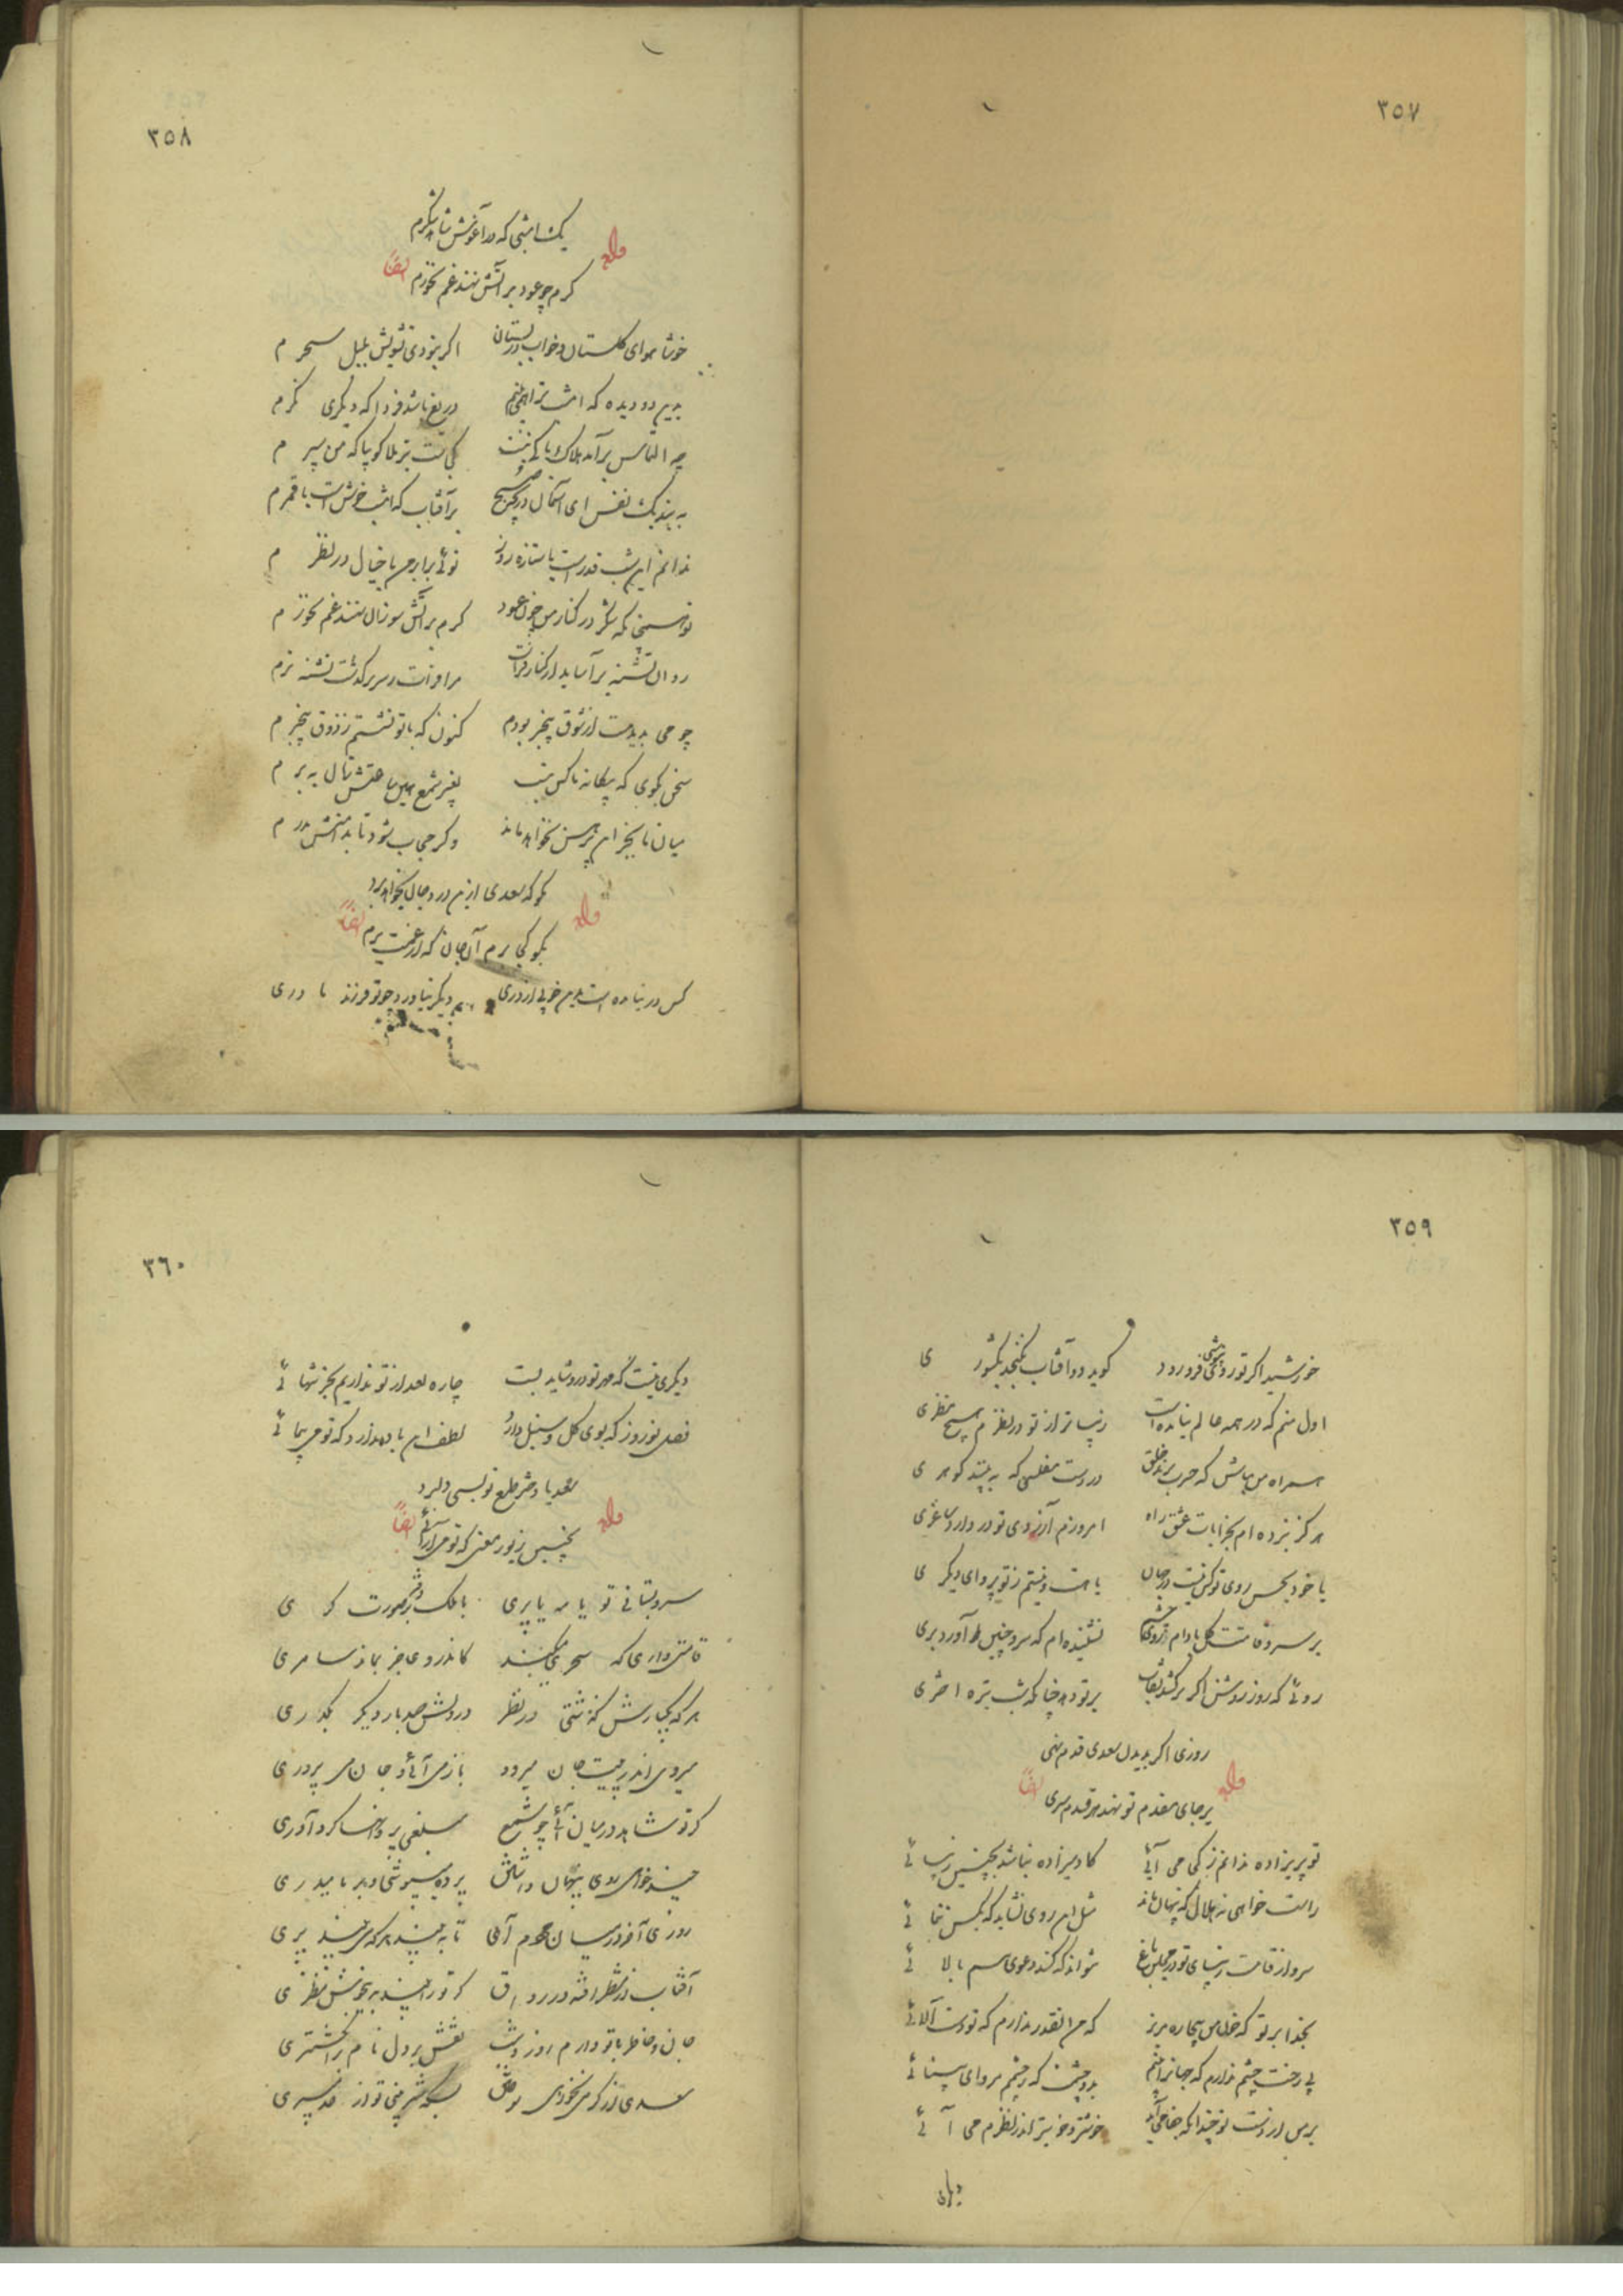 ٣٥٧
٣٥٨
یک امشبی که در آغوش شاهد شکرم
وله ایضاً
گرم چو عود بر آتش نهند غم نخورم
خوشا هوای گلستان و خواب در بستان اگر نبودی تشویش بلبل سحرم
بدین دو دیده که امشب ترا همی بینم دریغ باشد فردا که دیگری نگرم
چه التماس برآمد هلاک باکی نیست کجاست تیر بلا گو بیا که من سپرم
ببند یک نفس ای آسمان دریچه صبح بر آفتاب که امشب خوش است با قمرم
ندانم این شب قدر است یا ستاره روز توئی برابر من یا خیال در نظرم
تو اینکه در کنار من چون عود گرم بر آتش سوزان نهند غم نخورم
روان تشنه برآساید از کنار فرات مرا فرات ز سر برگذشت تشنه ترم
چو می ندیدمت از شوق بیخبر بودم کنون که با تو نشستم ز ذوق بیخبرم
سخن بگوی که بیگانه با کس نیست بغیر شمع همین ساعتش زبان ببرم
میان ما بجز این پیرهن نخواهد ماند وگر حجاب شود تا بدامنش بدرم
مگو که سعدی ازین درد جان نخواهد برد
وله ایضاً
بگو کجا برم آن جان که از غمت ببرم
کس در نیامده است بدین خوبی از دری دیگر نیاورد چو تو فرزند مادری
٣٥٩
خورشید اگر تو روی نپوشی فرو رود گوید دو آفتاب نگنجد بکشوری
اول منم که در همه عالم نیامده است زیباتر از تو در نظرم هیچ منظری
همراه من مباش که حسرت برند خلق در دست مفلسی که به بینند گوهری
هرگز نبرده ام بخرابات عشق راه امروزم آرزوی تو در داد ساغری
یا خود بحسن روی تو کس نیست در جهان یا هست و نیستم ز تو پروای دیگری
بر سرو قامتت گل و بادام روی و چشم نشنیده ام که سرو چنین آورد بری
روئی که روز روشن اگر برکشد نقاب پرتو دهد چنانکه شب تیره اختری
روزی اگر بدیدن سعدی قدم نهی
وله ایضاً
بر جای مقدم تو نهد هر قدم سری
تو پریزاده ندانم ز کجا می آئی کادمیزاده نباشد بچنین زیبائی
راست خواهی نه حلال که پنهان ماند مثل این روی نشاید که بکس ننمائی
سرو از قامت زیبای تو در مجلس باغ نتواند که کند دعوی هم بالائی
بخدا بر تو که خون من بیچاره مریز که من آنقدر ندارم که تو دست آلائی
بی رخت چشم ندارم که جهانرا بینم بدو چشمت که ز چشم مرو ای بینائی
بر من از دست تو چندانکه جفا می آید خوشتر و خوبتر اندر نظرم می آئی
دیگری
٣٦٠
دیگری نیست که مهر تو درو شاید بست چاره بعد از تو نداریم بجز تنهائی
فصل نوروز که بوی گل و سنبل دارد لطف این باد ندارد که تو می پیمائی
سعدیا دختر طبع تو بسی دل ببرد
وله ایضاً
بچنین زیور معنی که تو می آرائی
سرو بستانی تو یا مه یا پری یا ملک یا دفتر صورت گری
قامتی داری که سحری میکند کاندرو عاجز بماند سامری
هر که یکبارش گذشتی در نظر در دلش صد بار دیگر بگذری
میروی اندر پیت جان میرود باز می آئی و جان می پروری
گر تو شاهد در میان آئی چو شمع مبلغی پروانه ها گرد آوری
چند خواهی روی پنهان داشتن پرده میپوشی و بر ما میدری
روزی آخر در میان مردم آی تا به بیند هر که می بیند پری
آفتاب از منظر افتد در رواق گر تو را بیند بخویش نظری
جان و خاطر با تو دارم روز و شب نقش بر دل نام بر انگشتری
سعدی از گرمی نخوردی سوختن بسکه شیرینی تو از حد میبری